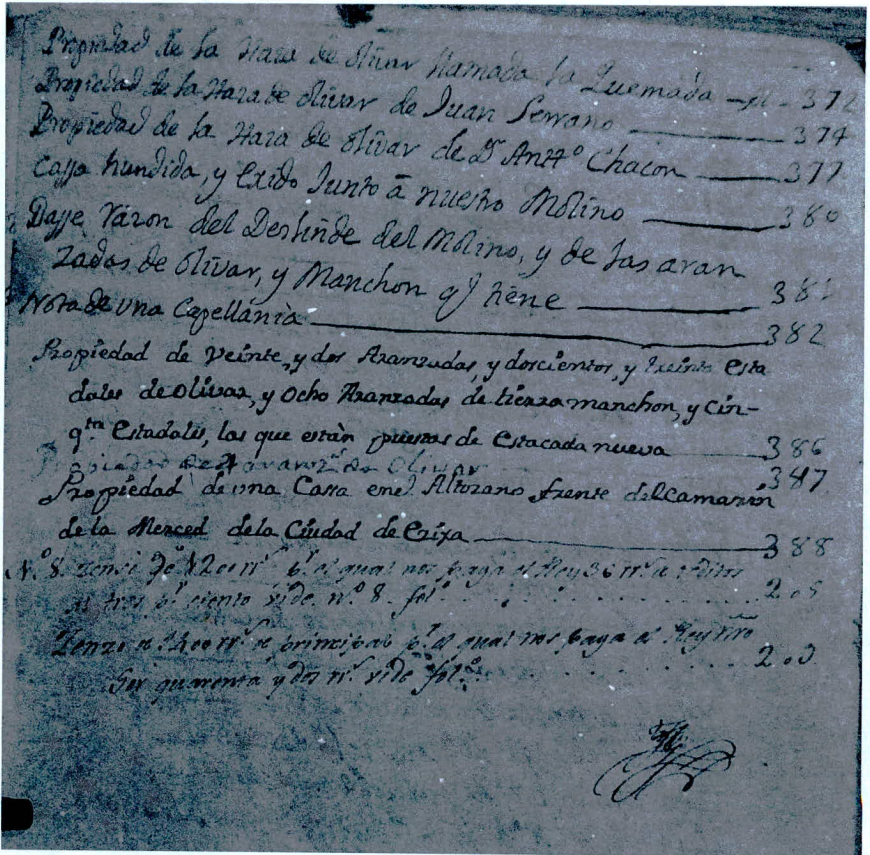 Propiedad de la Haza de olivar llamada la Quemada — fl - 372
Propiedad de la Haza de olivar de Juan Serrano — 374
Propiedad de la Haza de olivar de Dn Antto Chacon — 377
Cassa hundida, y exido Junto à nuestro Molino — 380
Dasse razon del Deslinde del Molino, y de las aran
zadas de olivar, y Manchon q tiene — 381
Nota de una Capellanìa — 382
Propiedad de Veinte, y dos Aranzadas, y doscientos, y treinta Esta
dales de Olivar, y Ocho Aranzadas de tierra manchon, y cin-
qta Estadales, las que estàn puestas de Estacada nueva — 386
Propiedad de 4 aranzs de Olivar 387
Propiedad de una Cassa en el Altozano frente del camarin
de la Merced de la Ciudad de Ezixa — 388
N.º 8. por el qual nos paga el Rey 36 rr.s de reditos
al tres pr ciento vide nº 8. folº . . . 205
Zenzo de 1400 rrs de principal pr el qual nos paga el Rey nro
Sor quarenta y dos rrs vide folº . . . 203